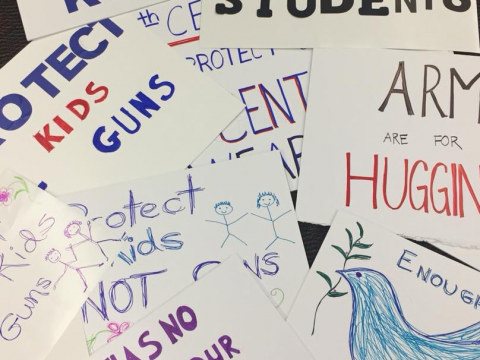 STUDENTS
PROTECT
KIDS
GUNS
th CE
PROTECT
CENT
WEAP
ARM
ARE FOR
HUGGIN
Protect
Kids
NOT GUNS
Kids
Guns
HAS NO
OUR
ENOUGH